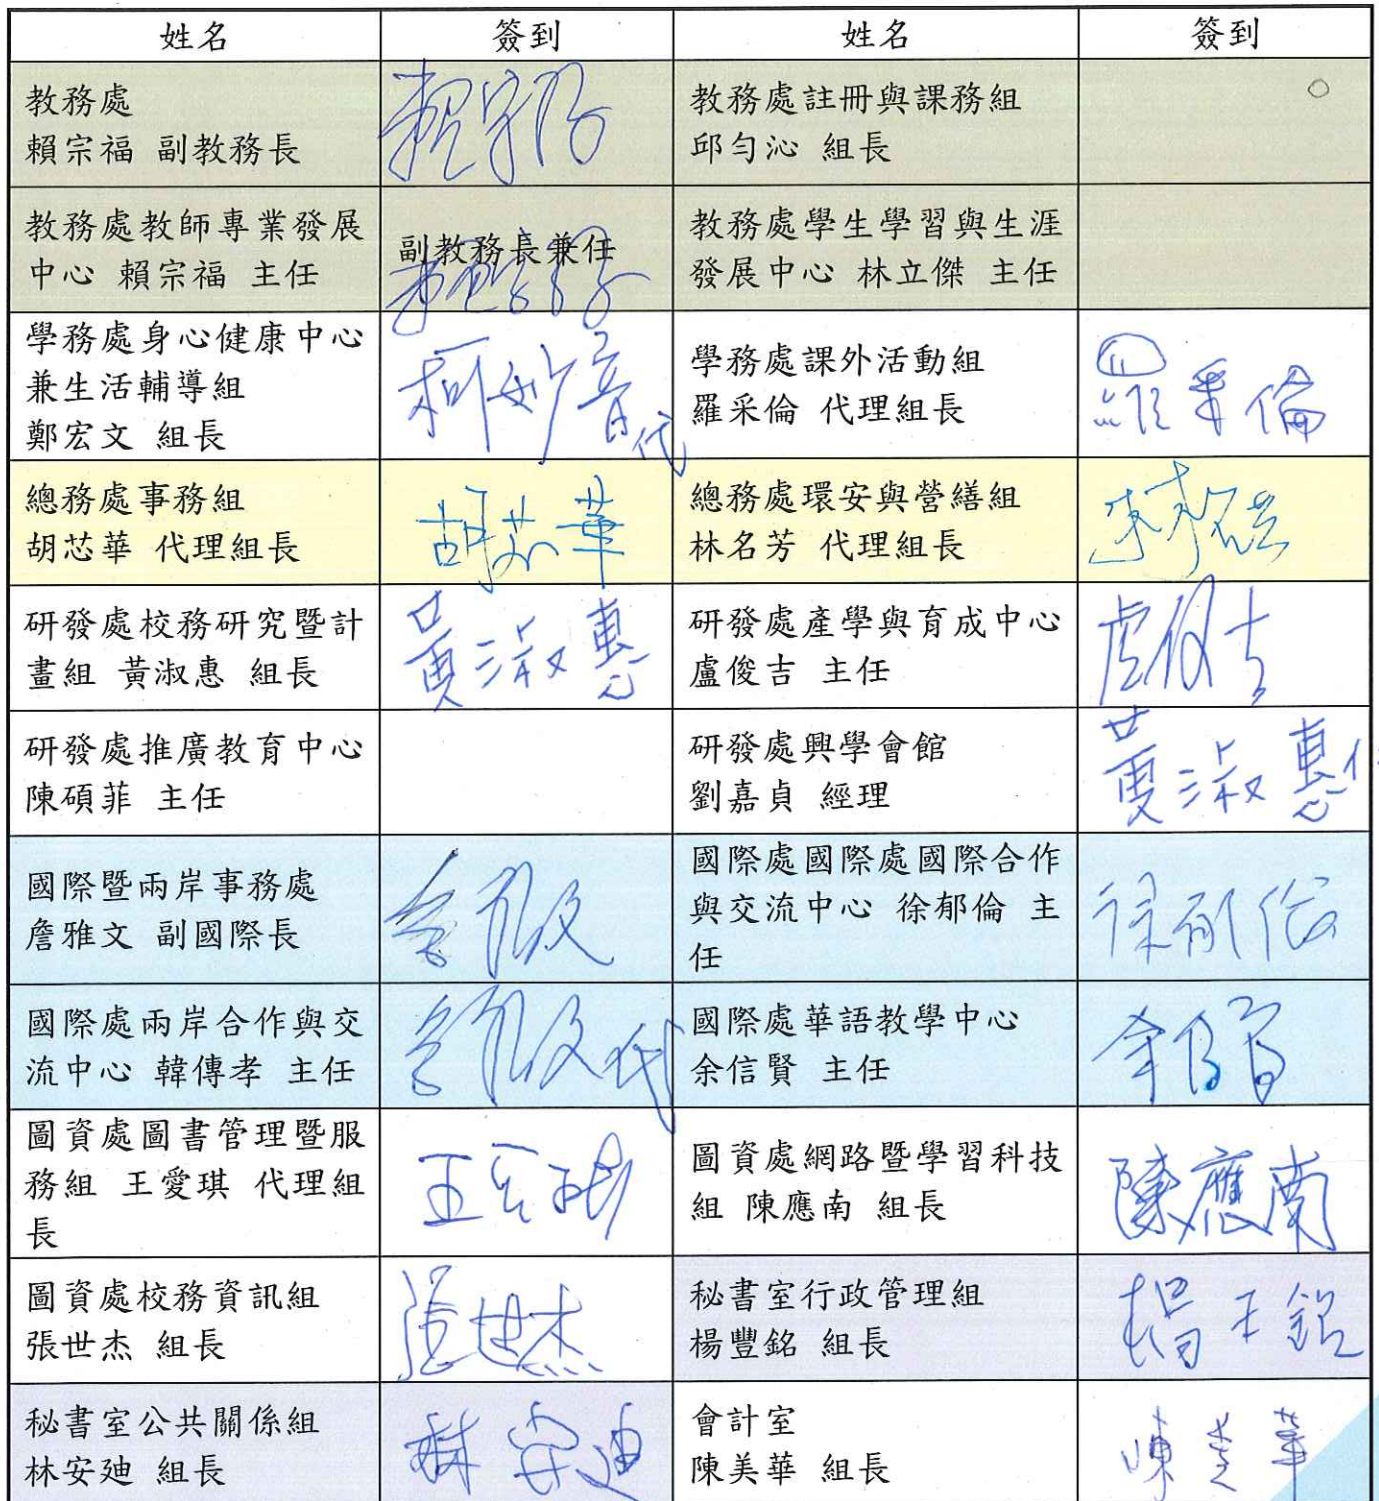 姓名 簽到 姓名 簽到
教務處
賴宗福 副教務長
賴宗福
教務處註冊與課務組
邱勻沁 組長
教務處教師專業發展
中心 賴宗福 主任
副教務長兼任
賴宗福
教務處學生學習與生涯
發展中心 林立傑 主任
學務處身心健康中心
兼生活輔導組
鄭宏文 組長
柯妙音代
學務處課外活動組
羅采倫 代理組長
羅采倫
總務處事務組
胡芯華 代理組長
胡芯華
總務處環安與營繕組
林名芳 代理組長
研發處校務研究暨計
畫組 黃淑惠 組長
黃淑惠
研發處產學與育成中心
盧俊吉 主任
盧俊吉
研發處推廣教育中心
陳碩菲 主任
研發處興學會館
劉嘉貞 經理
黃淑惠代
國際暨兩岸事務處
詹雅文 副國際長
詹雅文
國際處國際處國際合作
與交流中心 徐郁倫 主
任
徐郁倫
國際處兩岸合作與交
流中心 韓傳孝 主任
詹雅文代
國際處華語教學中心
余信賢 主任
余信賢
圖資處圖書管理暨服
務組 王愛琪 代理組
長
王愛琪
圖資處網路暨學習科技
組 陳應南 組長
陳應南
圖資處校務資訊組
張世杰 組長
張世杰
秘書室行政管理組
楊豐銘 組長
楊豐銘
秘書室公共關係組
林安廸 組長
林安迪
會計室
陳美華 組長
陳美華